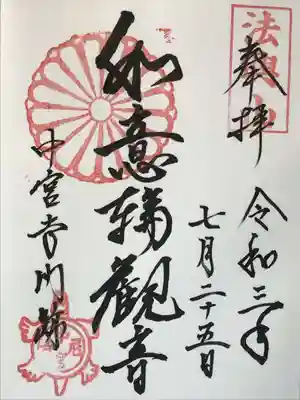 法興山
奉拝
令和三年
七月二十五日
如意輪觀音
中宮寺門跡